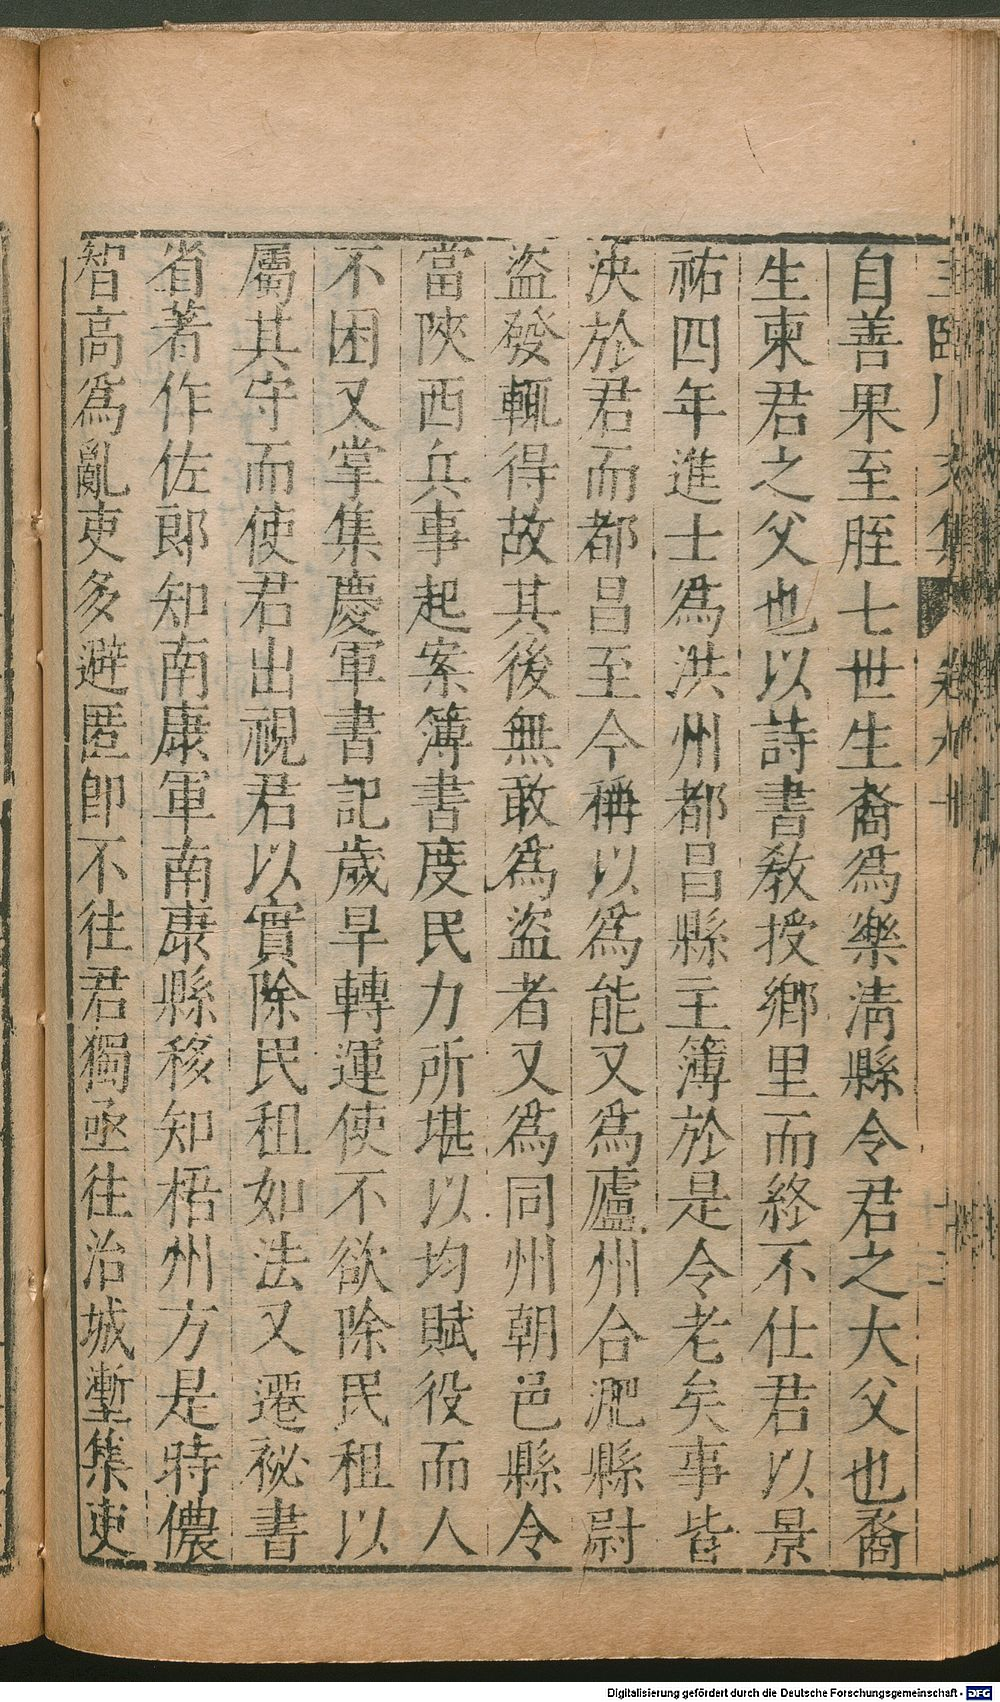 自善果至胵七世生裔爲樂清縣令君之大父也裔
生東君之父也以詩書敎授鄉里而終不仕君以景
祐四年進士爲洪州都昌縣主簿於是令老矣事皆
決於君而都昌至今稱以爲能又爲廬州合淝縣尉
盜發輒得故其後無敢爲盜者又爲同州朝邑縣令
當陝西兵事起案簿書度民力所堪以均賦役而人
不困又掌集慶軍書記歲旱轉運使不欲除民租以
屬其守而使君出視君以實除民租如法又遷祕書
省著作佐郎知南康軍南康縣移知梧州方是時儂
智高爲亂吏多避匿卽不往君獨亟往治城塹集吏
Digitalisierung gefördert durch die Deutsche Forschungsgemeinschaft - DFG